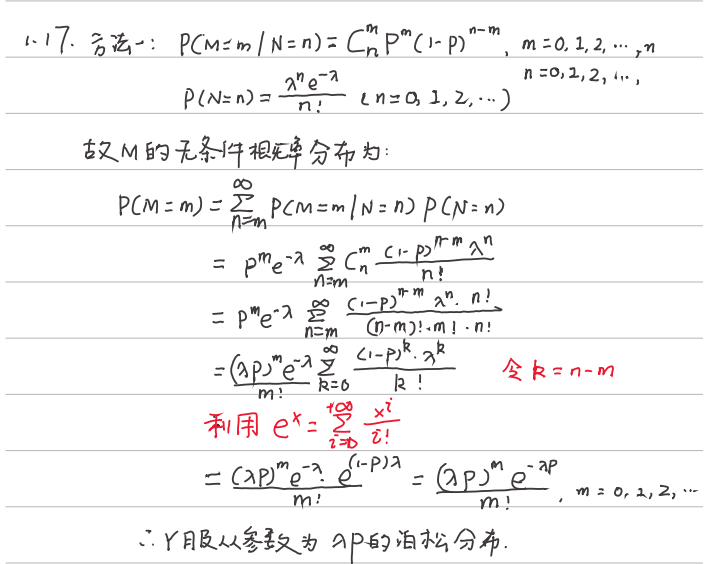 1.17. 方法一: P(M=m/N=n) = C_n^m P^m (1-P)^{n-m}, m=0,1,2,…,n
n=0,1,2,…,
P(N=n) = \frac{λ^n e^{-λ}}{n!} (n=0,1,2,…)
故M的无条件概率分布为:
P(M=m) = \sum_{n=m}^{∞} P(M=m/N=n) P(N=n)
= P^m e^{-λ} \sum_{n=m}^{∞} C_n^m \frac{(1-P)^{n-m} λ^n}{n!}
= P^m e^{-λ} \sum_{n=m}^{∞} \frac{(1-P)^{n-m} λ^n · n!}{(n-m)!·m!·n!}
= \frac{(λP)^m e^{-λ}}{m!} \sum_{k=0}^{∞} \frac{(1-P)^k · λ^k}{k!} 令 k=n-m
利用 e^x = \sum_{i=0}^{+∞} \frac{x^i}{i!}
= \frac{(λP)^m e^{-λ} · e^{(1-P)λ}}{m!} = \frac{(λP)^m e^{-λP}}{m!}, m=0,1,2,…
∴Y服从参数为λP的泊松分布.